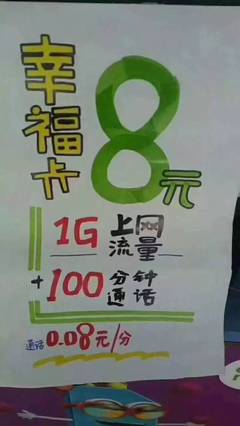 幸福卡
8元
1G 上网流量
+100 分钟通话
通话0.08元/分